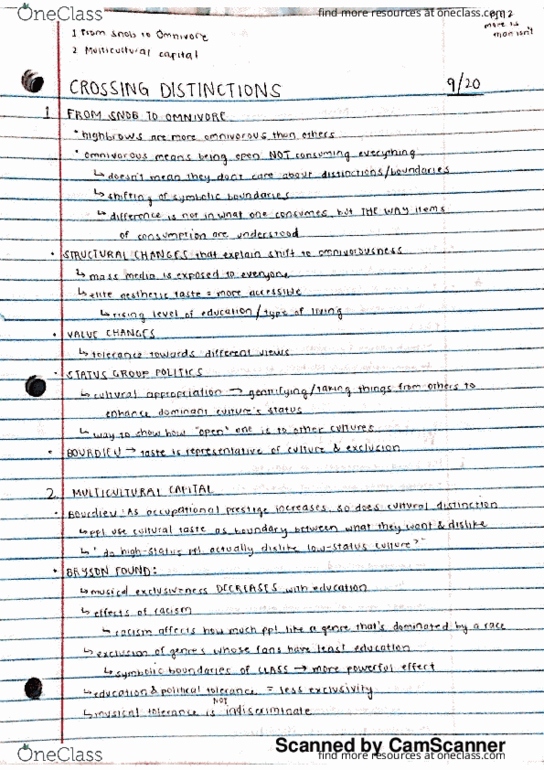 OneClass
find more resources at oneclass.com
1 From Snob to Omnivore
2 Multicultural capital
more is
CROSSING DISTINCTIONS
9/20
1 FROM SNOB TO OMNIVORE
• highbrows are more omnivorous than others
• omnivorous means being open NOT consuming everything
↳ doesn't mean they don't care about distinctions/boundaries
↳ shifting of symbolic boundaries
↳ difference is not in what one consumes but THE WAY items
of consumption are understood
• STRUCTURAL CHANGES that explain shift to omnivorousness
↳ mass media is exposed to everyone
↳ elite aesthetic taste = more accessible
↳ rising level of education/type of living
• VALUE CHANGES
↳ tolerance towards different views
• STATUS GROUP POLITICS
↳ cultural appropriation → gentrifying/taking things from others to
enhance dominant culture's status
↳ way to show how "open" one is to other cultures
• BOURDIEU → taste is representative of culture & exclusion
2. MULTICULTURAL CAPITAL
• Bourdieu: As occupational prestige increases, so does cultural distinction
↳ ppl use cultural taste as boundary between what they want & dislike
↳ "do high-status ppl actually dislike low-status culture?"
• BRYSON FOUND:
↳ musical exclusiveness DECREASES with education
↳ effects of racism
↳ racism affects how much ppl like a genre that's dominated by a race
↳ exclusion of genres whose fans have least education
↳ symbolic boundaries of CLASS → more powerful effect
↳ education & political tolerance = less exclusivity
↳ musical tolerance is NOT indiscriminate
Scanned by CamScanner
OneClass
find more resources at oneclass.com